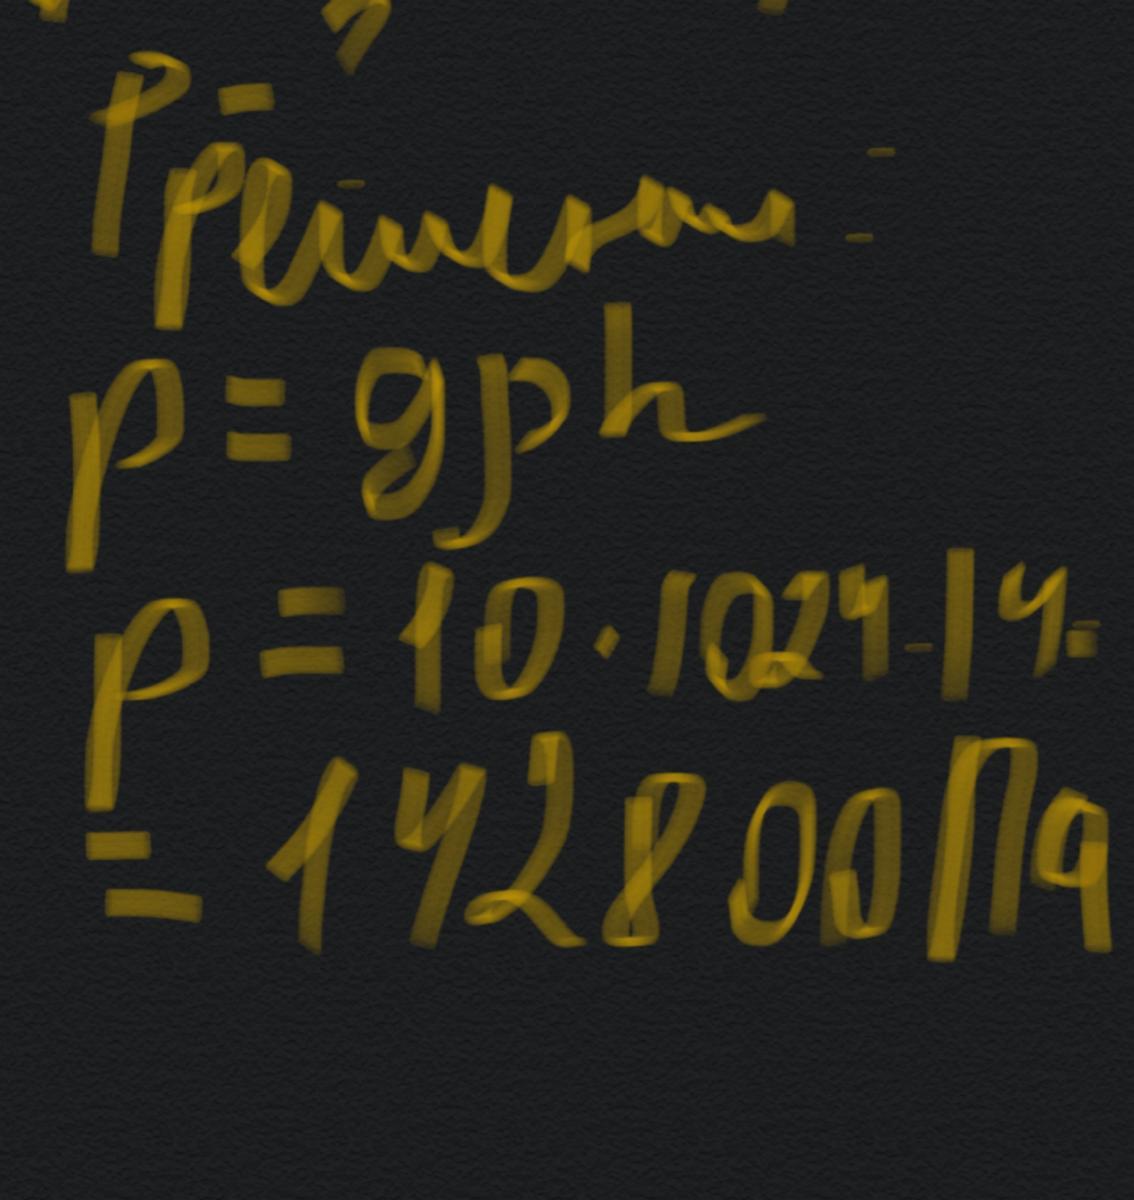 P -
решение
p = gph
p = 10 · 1024 - 14 =
= 142800 Па